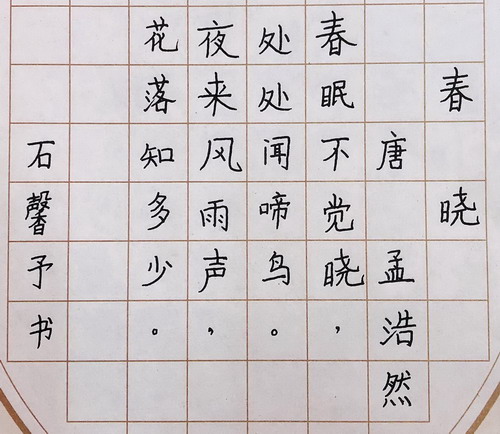 春晓
唐孟浩然
春眠不觉晓，
处处闻啼鸟。
夜来风雨声，
花落知多少。
石馨予书